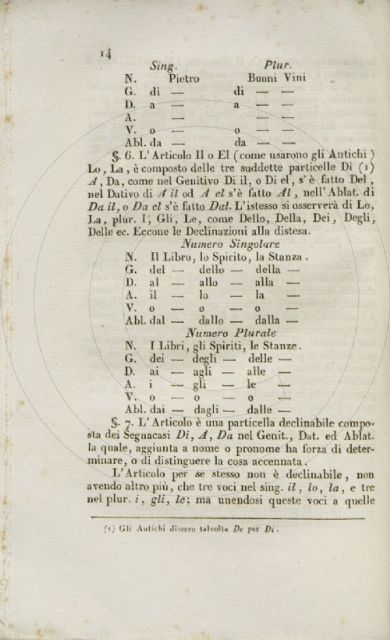 14
Sing. Plur.
N. Pietro Buoni Vini
G. di — di — —
D. a — a — —
A. — — —
V. o — o — —
Abl. da — da — —
§. 6. L'Articolo Il o El (come usarono gli Antichi)
Lo, La, è composto delle tre suddette particelle Di (1)
A, Da, come nel Genitivo Di il, o Di el, s'è fatto Del,
nel Dativo di A il od A el s'è fatto Al, nell'Ablat. di
Da il, o Da el s'è fatto Dal. L'istesso si osserverà di Lo,
La, plur. I, Gli, Le, come Dello, Della, Dei, Degli,
Delle ec. Eccone le Declinazioni alla distesa.
Numero Singolare
N. Il Libro, lo Spirito, la Stanza.
G. del — dello — della —
D. al — allo — alla —
A. il — lo — la —
V. o — o — o —
Abl. dal — dallo — dalla —
Numero Plurale
N. I Libri, gli Spiriti, le Stanze.
G. dei — degli — delle —
D. ai — agli — alle —
A. i — gli — le —
V. o — o — o —
Abl. dai — dagli — dalle —
§. 7. L'Articolo è una particella declinabile compo-
sta dei Segnacasi Di, A, Da nel Genit., Dat. ed Ablat.
la quale, aggiunta a nome o pronome ha forza di deter-
minare, o di distinguere la cosa accennata.
L'Articolo per se stesso non è declinabile, non
avendo altro più, che tre voci nel sing. il, lo, la, e tre
nel plur. i, gli, le; ma unendosi queste voci a quelle
(1) Gli Antichi dissero talvolta De per Di.